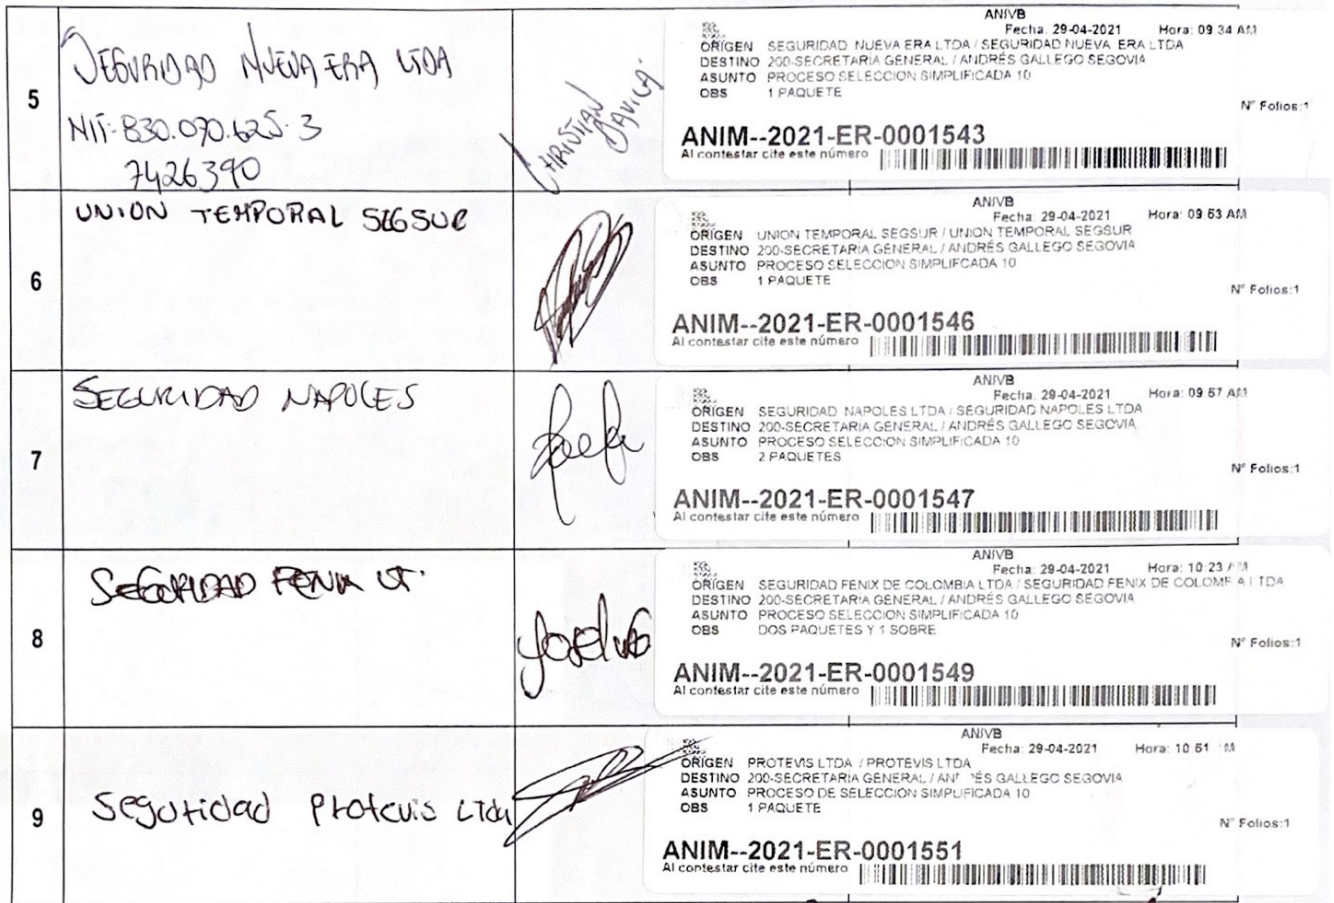 5
SEGURIDAD NUEVA ERA LTDA
NIT-830.090.625-3
7426390
CHRISTIAN DAVILA.
ANIVB
Fecha: 29-04-2021 Hora: 09:34 AM
ORIGEN SEGURIDAD NUEVA ERA LTDA / SEGURIDAD NUEVA ERA LTDA
DESTINO 200-SECRETARIA GENERAL / ANDRÉS GALLEGO SEGOVIA
ASUNTO PROCESO SELECCION SIMPLIFICADA 10
OBS 1 PAQUETE
N° Folios:1
ANIM--2021-ER-0001543
Al contestar cite este número
6
UNION TEMPORAL SEGSUR
ANIVB
Fecha: 29-04-2021 Hora: 09:53 AM
ORIGEN UNION TEMPORAL SEGSUR / UNION TEMPORAL SEGSUR
DESTINO 200-SECRETARIA GENERAL / ANDRÉS GALLEGO SEGOVIA
ASUNTO PROCESO SELECCION SIMPLIFCADA 10
OBS 1 PAQUETE
N° Folios:1
ANIM--2021-ER-0001546
Al contestar cite este número
7
SEGURIDAD NAPOLES
ANIVB
Fecha: 29-04-2021 Hora: 09:57 AM
ORIGEN SEGURIDAD NAPOLES LTDA / SEGURIDAD NAPOLES LTDA
DESTINO 200-SECRETARIA GENERAL / ANDRÉS GALLEGO SEGOVIA
ASUNTO PROCESO SELECCION SIMPLIFICADA 10
OBS 2 PAQUETES
N° Folios:1
ANIM--2021-ER-0001547
Al contestar cite este número
8
SEGURIDAD FENIX UT.
ANIVB
Fecha: 29-04-2021 Hora: 10:23
ORIGEN SEGURIDAD FENIX DE COLOMBIA LTDA / SEGURIDAD FENIX DE COLOMBIA LTDA
DESTINO 200-SECRETARIA GENERAL / ANDRÉS GALLEGO SEGOVIA
ASUNTO PROCESO SELECCION SIMPLIFICADA 10
OBS DOS PAQUETES Y 1 SOBRE
N° Folios:1
ANIM--2021-ER-0001549
Al contestar cite este número
9
Seguridad Protevis LTda
ANIVB
Fecha: 29-04-2021 Hora: 10:51
ORIGEN PROTEVIS LTDA / PROTEVIS LTDA
DESTINO 200-SECRETARIA GENERAL / ANDRÉS GALLEGO SEGOVIA
ASUNTO PROCESO DE SELECCION SIMPLIFICADA 10
OBS 1 PAQUETE
N° Folios:1
ANIM--2021-ER-0001551
Al contestar cite este número